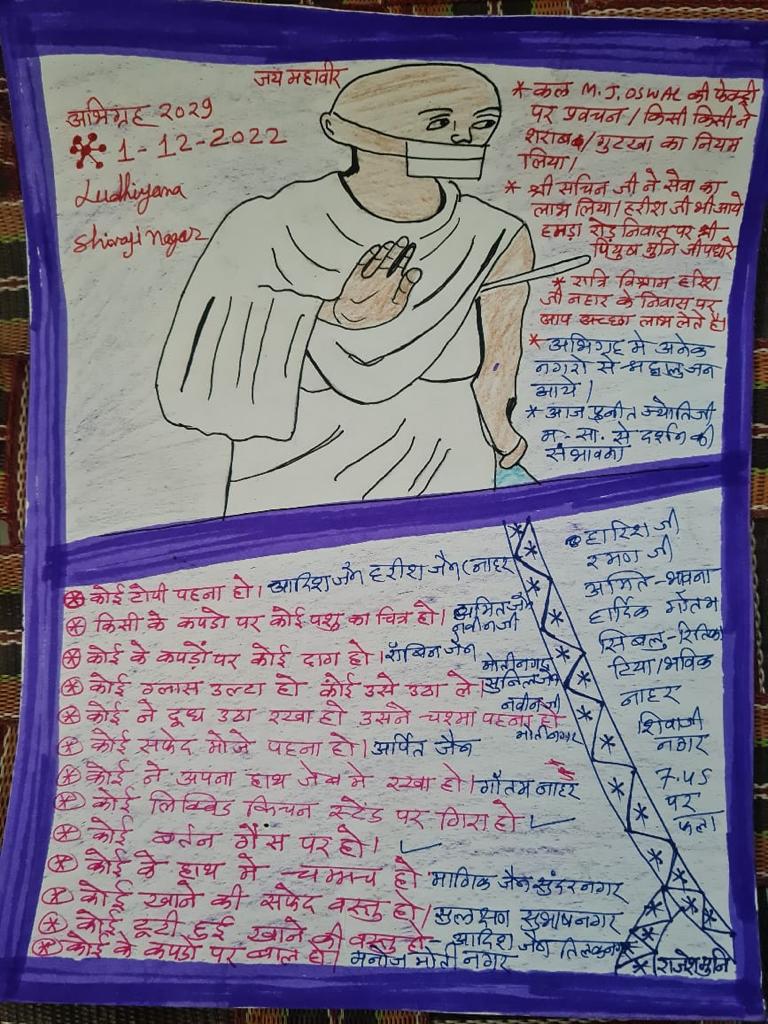 जय महावीर
अभिग्रह 2029
1-12-2022
Ludhiyana
Shivaji Nagar
* कल M.J. OSWAL की फेक्ट्री
पर प्रवचन। किसी किसी ने
शराब/गुटखा का नियम
लिया।
* श्री सचिन जी ने सेवा का
लाभ लिया। हरीश जी भी आये
हमड़ा रोड़ निवास पर श्री
पियुष मुनि जी पधारे
* रात्रि विश्राम हरिश
जी नहार के निवास पर
आप अच्छा लाभ लेते है।
* अभिग्रह मे अनेक
नगरो से श्रद्धालुजन
आये।
* आज पुनीत ज्योतिजी
म-सा. से दर्शन की
संभावना
कोई टोपी पहना हो। आरिश जैन हरीश जैन (नाहर
किसी के कपडो पर कोई पशु का चित्र हो। अमित जैन
नवीनजी
कोई के कपड़ों पर कोई दाग हो। रॉबिन जैन
कोई ग्लास उल्टा हो कोई उसे उठा ले। मोतीनगर
सुनिल जैन
कोई ने दूध उठा रखा हो उसने चश्मा पहना हो नवीनजी
मोतीनगर
कोई सफेद मोजे पहना हो। अर्पित जैन
कोई ने अपना हाथ जेब मे रखा हो। गौतम नाहर
कोई लिक्विड किचन स्टेंड पर गिरा हो ✓
कोई बर्तन गैस पर हो। ✓
कोई के हाथ मे चम्मच हो मागिक जैन सुंदरनगर
कोई खाने की सफेद वस्तु हो/ सुलक्षण सुभाषनगर
कोई टूटी हुई खाने की वस्तु हो- आदिश जैन तिलकनगर
कोई के कपडो पर बाल हो। मनोज मोती नगर
हारिश जी
रमण जी
अमित-भावना
हार्दिक गौतम
टिया/भविक
नाहर
शिवाजी
नगर
7.45
पर
फला
राजेश मुनि